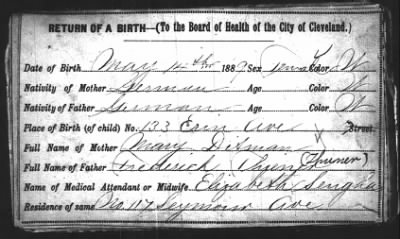 RETURN OF A BIRTH—(To the Board of Health of the City of Cleveland.)
Date of Birth May 14th 1889 Sex Female Color W
Nativity of Mother German Age Color W
Nativity of Father German Age Color W
Place of Birth (of child) No. 133 Erin Ave Street
Full Name of Mother Mary Dilman
Full Name of Father Frederick (Thuner)
Name of Medical Attendant or Midwife. Elizabeth
Residence of same No 117 Seymour Ave